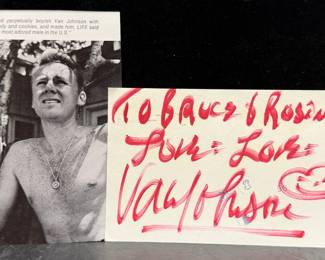 perpetually boyish Van Johnson with
and cookies, and made him, LIFE said
most adored male in the U.S."
TO BRUCE & ROSE
Love = Love =
Van Johnson